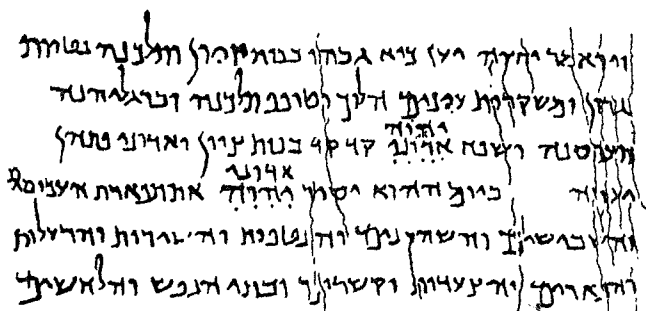 ויואמר יהוה יען כיא גבהו בנות ציון ותלכנה נטוות
גרון ומשקרות עינים הלוך וטופף תלכנה וברגליהנה
יהוה
תעכסנה ושפח אדוני קדקד בנות ציון ואדוני פתהן
אדוני
יערה ביום ההוא יסיר יהוה את תפארת העכסים
והשבישים והשהרנים והנטפות והשירות והרעלות
והפארים והצעדות וקשרים ובתי הנפש והלחשים